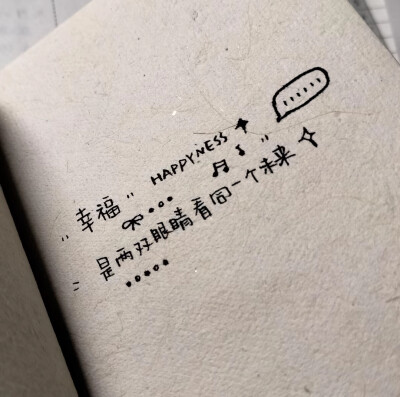 "幸福" HAPPYNESS
是两双眼睛看同一个未来